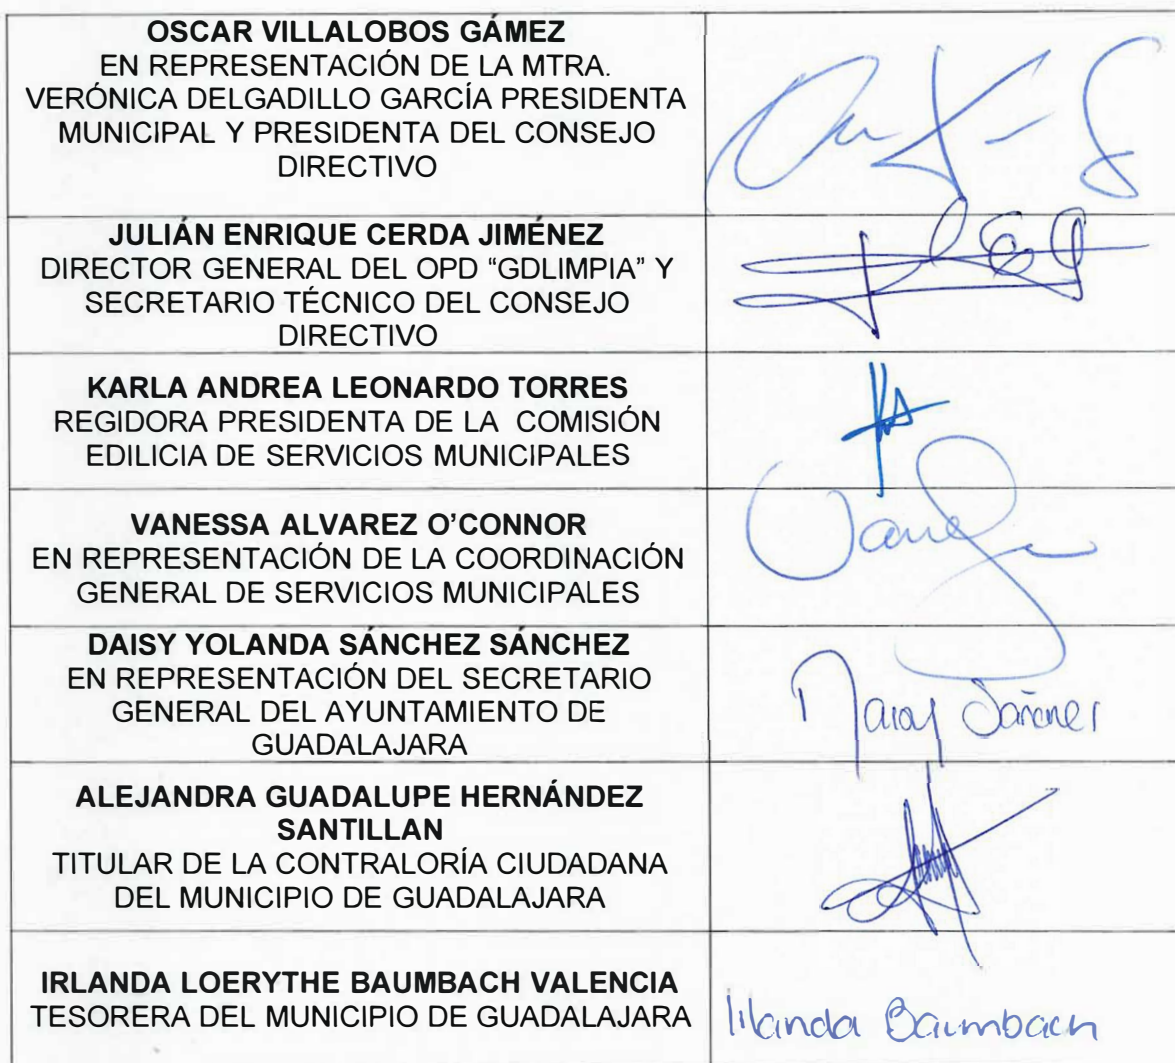 OSCAR VILLALOBOS GÁMEZ
EN REPRESENTACIÓN DE LA MTRA.
VERÓNICA DELGADILLO GARCÍA PRESIDENTA
MUNICIPAL Y PRESIDENTA DEL CONSEJO
DIRECTIVO
JULIÁN ENRIQUE CERDA JIMÉNEZ
DIRECTOR GENERAL DEL OPD “GDLIMPIA” Y
SECRETARIO TÉCNICO DEL CONSEJO
DIRECTIVO
KARLA ANDREA LEONARDO TORRES
REGIDORA PRESIDENTA DE LA COMISIÓN
EDILICIA DE SERVICIOS MUNICIPALES
VANESSA ALVAREZ O’CONNOR
EN REPRESENTACIÓN DE LA COORDINACIÓN
GENERAL DE SERVICIOS MUNICIPALES
DAISY YOLANDA SÁNCHEZ SÁNCHEZ
EN REPRESENTACIÓN DEL SECRETARIO
GENERAL DEL AYUNTAMIENTO DE
GUADALAJARA
ALEJANDRA GUADALUPE HERNÁNDEZ
SANTILLAN
TITULAR DE LA CONTRALORÍA CIUDADANA
DEL MUNICIPIO DE GUADALAJARA
IRLANDA LOERYTHE BAUMBACH VALENCIA
TESORERA DEL MUNICIPIO DE GUADALAJARA
Irlanda Baumbach